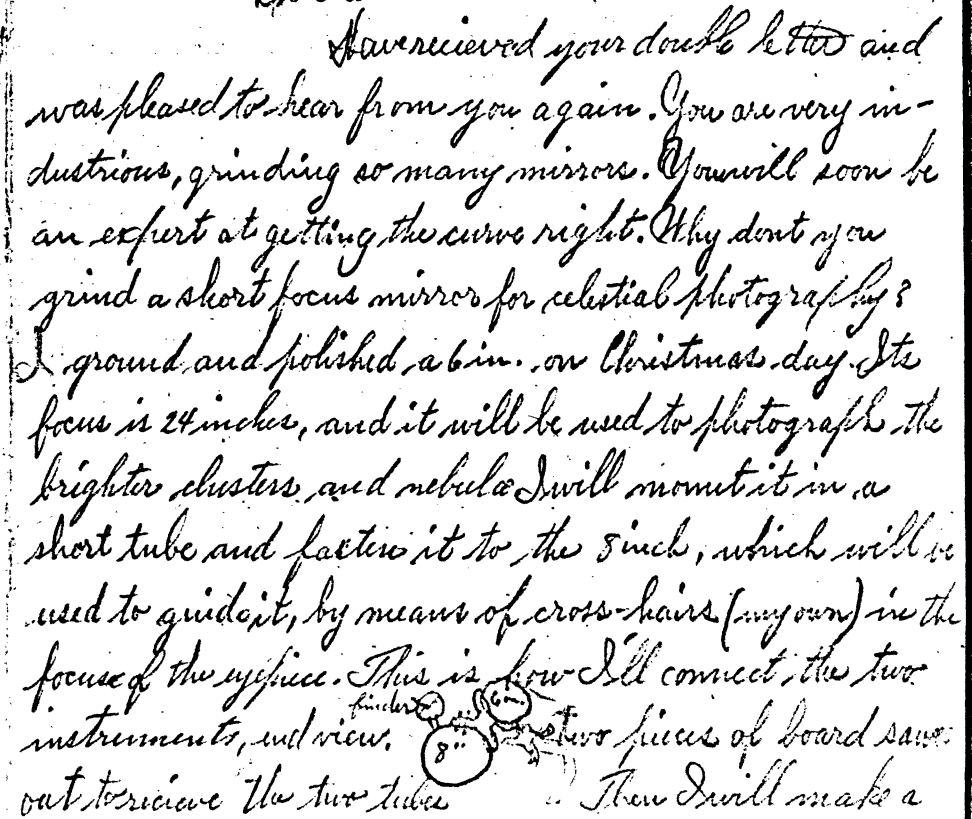 Have recieved your double letter and
was pleased to hear from you again. You are very in-
dustrious, grinding so many mirrors. You will soon be
an expert at getting the curve right. Why dont you
grind a short focus mirror for celestial photography?
I ground and polished a 6 in. on Christmas day. Its
focus is 24 inches, and it will be used to photograph the
brighter clusters and nebulæ I will mount it in a
short tube and fasten it to the 8 inch, which will be
used to guide it, by means of cross-hairs (my own) in the
focus of the eyepiece. This is how I'll connect the two
finder 6in
instruments, end view. 8" two pieces of board sawn
out to recieve the two tubes Then I will make a